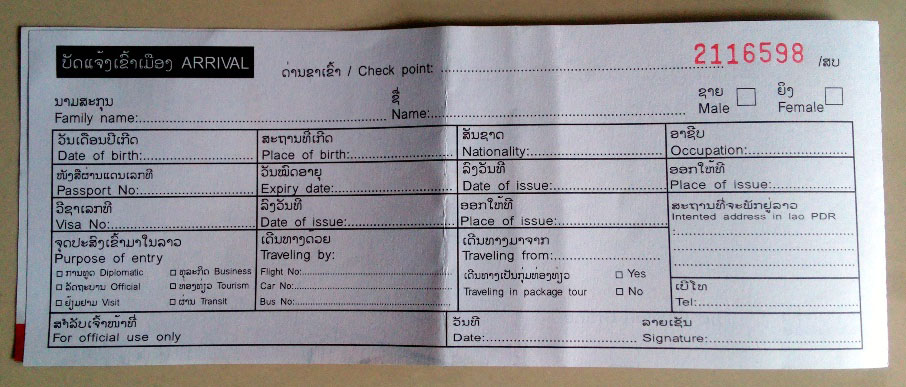 ບັດແຈ້ງເຂົ້າເມືອງ ARRIVAL
ດ່ານຂາເຂົ້າ / Check point:
2116598 /ສບ
ນາມສະກຸນ
Family name:
ຊື່
Name:
ຊາຍ
Male
ຍິງ
Female
ວັນເດືອນປີເກີດ
Date of birth:
ສະຖານທີ່ເກີດ
Place of birth:
ສັນຊາດ
Nationality:
ອາຊີບ
Occupation:
ໜັງສືຜ່ານແດນເລກທີ
Passport No:
ວັນໝົດອາຍຸ
Expiry date:
ລົງວັນທີ
Date of issue:
ອອກໃຫ້ທີ່
Place of issue:
ວີຊາເລກທີ
Visa No:
ລົງວັນທີ
Date of issue:
ອອກໃຫ້ທີ່
Place of issue:
ສະຖານທີ່ຈະພັກຢູ່ລາວ
Intented address in lao PDR
ຈຸດປະສົງເຂົ້າມາໃນລາວ
Purpose of entry
ການທູດ Diplomatic
ທຸລະກິດ Business
ລັດຖະບານ Official
ທ່ອງທ່ຽວ Tourism
ຢ້ຽມຢາມ Visit
ຜ່ານ Transit
ເດີນທາງດ້ວຍ
Traveling by:
Flight No:
Car No:
Bus No:
ເດີນທາງມາຈາກ
Traveling from:
ເດີນທາງເປັນກຸ່ມທ່ອງທ່ຽວ
Traveling in package tour
Yes
No
ເບີໂທ
Tel:
ສຳລັບເຈົ້າໜ້າທີ່
For official use only
ວັນທີ
Date:
ລາຍເຊັນ
Signature: